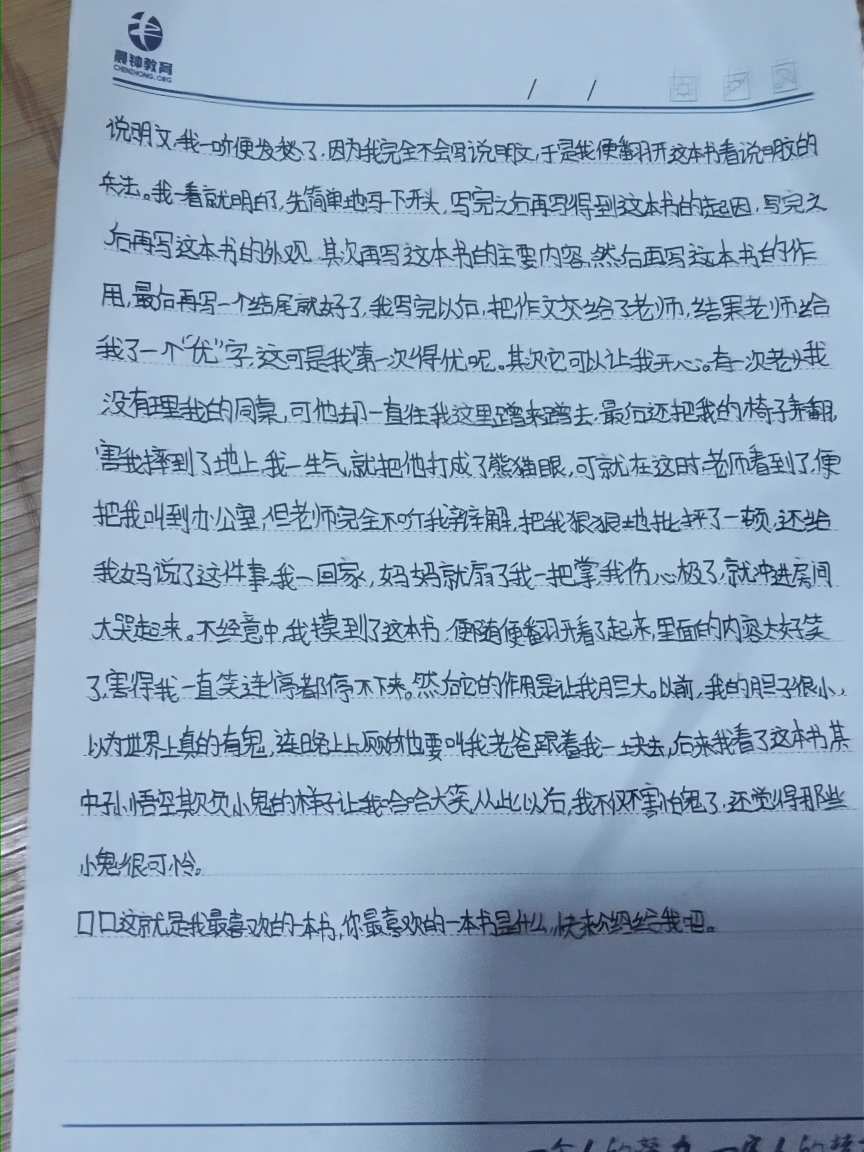 晨钟教育
CHENZHONG.ORG
/ /
说明文,我一听便发愁了,因为我完全不会写说明文,于是我便翻开这本书看说明文的
兵法。我一看就明白了,先简单地写一下开头,写完之后再写得到这本书的起因,写完之
后再写这本书的外观,其次再写这本书的主要内容,然后再写这本书的作
用,最后再写一个结尾就好了,我写完以后,把作文交给了老师,结果老师给
我了一个“优”字,这可是我第一次得优呢。其次它可以让我开心。有一次老师我
没有理我的同桌,可他却一直往我这里蹭来蹭去,最后还把我的椅子弄翻,
害我摔到了地上,我一生气,就把他打成了熊猫眼,可就在这时,老师看到了,便
把我叫到办公室,但老师完全不听我辩解,把我狠狠地批评了一顿,还给
我妈说了这件事,我一回家,妈妈就扇了我一把掌,我伤心极了,就冲进房间
大哭起来。不经意中,我摸到了这本书,便随便翻开看了起来,里面的内容太好笑
了,害得我一直笑连停都停不下来。然后它的作用是让我胆大。以前,我的胆子很小,
以为世界上真的有鬼,连晚上上厕所也要叫我老爸跟着我一块去,后来我看了这本书其
中孙悟空欺负小鬼的样子让我哈哈大笑,从此以后,我不仅不害怕鬼了,还觉得那些
小鬼很可怜。
口口这就是我最喜欢的一本书,你最喜欢的一本书是什么,快来介绍给我吧。
一个人的努力